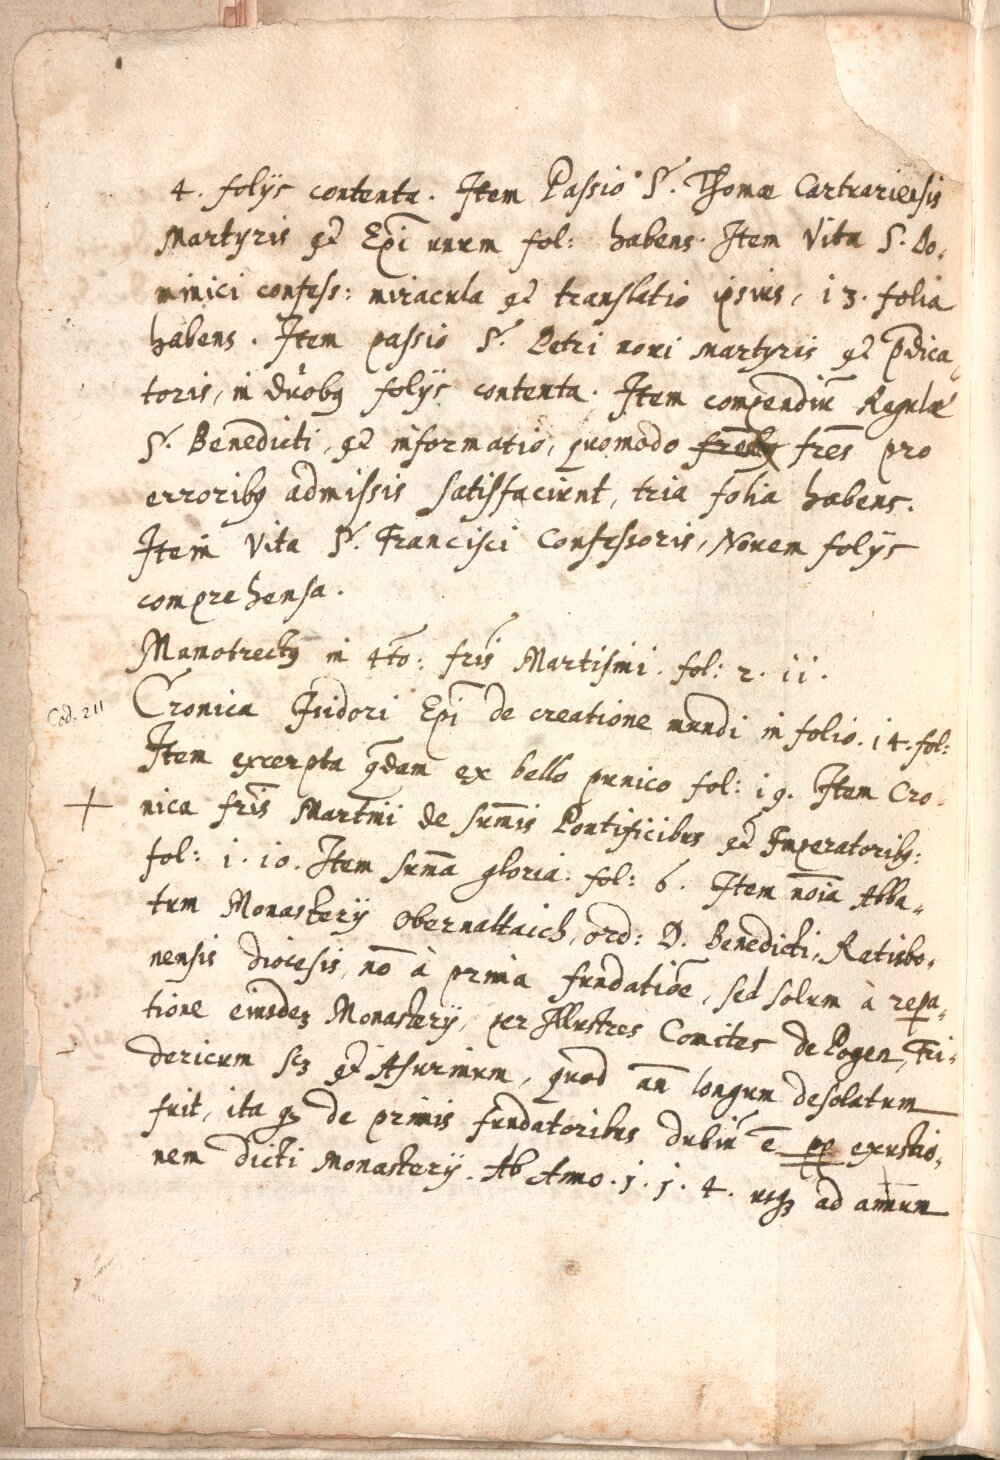 4. folijs contenta. Item Passio S. Thomæ Cartuariensis
Martyris et Epĩ unum fol: habens. Item Vita S. Do-
minici confess: miracula et translatio ipsius, 13. folia
habens. Item passio S. Petri novi martyris et p̃dica-
toris, in duobꝰ folijs contenta. Item compendiũ Regulæ
S. Benedicti, et informatio, quomodo fres̃ pro
erroribꝰ admissis satisfaciunt, tria folia habens.
Item Vita S. Francisci Confessoris, Novem folijs
comprehensa.
Mamotrectꝰ in 4to: fris̃ Martisini. fol: 2. 11.
Cod. 211
Cronica Isidori Epĩ de creatione mundi in folio. 14. fol:
Item excerpta q̃dam ex bello punico fol: 19. Item Cro-
nica fris̃ Martini de sum̃is Pontificibus et Imperatoribꝰ:
fol: 1. 10. Item sum̃a gloria. fol: 6. Item nõia Abba-
tum Monasterij Obernaltaich, ord: D. Benedicti, Ratisbo-
nensis diocesis, nõ à prima fundatiõe, sed solum à repa-
tione eiusdeꝫ Monasterij, per Illustres Comites de Pogen, Fri-
dericum scꝫ et Asurinum, quod añ longum desolatum
fuit, ita ꝙ de primis fundatoribus dubiũ ẽ pp exustio-
nem dicti monasterij. Ab Anno. 1. 1. 4. usqꝫ ad annum